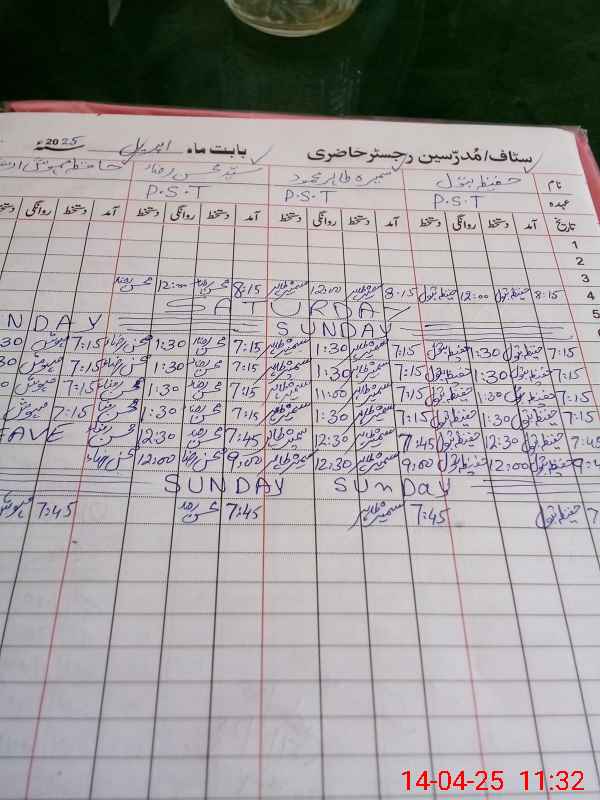 ستاف/مُدرّسین رجسٹر حاضری بابت ماہ اپریل 2025ء
نام حفیظ بتول سمیرہ طاہر محمود سید محسن رضا
عہدہ P.S.T P.S.T P.S.T
تاریخ آمد دستخط روانگی دستخط آمد دستخط روانگی دستخط آمد دستخط روانگی دستخط آمد دستخط روانگی
1
2
3
4 8:15 حفیظ بتول 12:00 حفیظ بتول 8:15 سمیرہ طاہر 12:00 سمیرہ طاہر 8:15 محسن رضا 12:00 محسن رضا
5 SATURDAY
SUNDAY
7:15 حفیظ بتول 1:30 حفیظ بتول 7:15 سمیرہ طاہر 1:30 سمیرہ طاہر 7:15 محسن رضا 1:30 محسن رضا 7:15 مہوش
7:15 حفیظ بتول 1:30 حفیظ بتول 7:15 سمیرہ طاہر 1:30 سمیرہ طاہر 7:15 محسن رضا 1:30 محسن رضا 7:15 مہوش
7:15 حفیظ بتول 1:30 حفیظ بتول 7:15 سمیرہ طاہر 11:00 سمیرہ طاہر 7:15 محسن رضا 1:30 محسن رضا 7:15 مہوش
7:15 حفیظ بتول 1:30 حفیظ بتول 7:15 سمیرہ طاہر 1:30 سمیرہ طاہر 7:15 محسن رضا 1:30 محسن رضا 7:15 مہوش
حفیظ بتول 12:30 حفیظ بتول 7:45 سمیرہ طاہر 12:30 سمیرہ طاہر 7:45 محسن رضا 12:30 محسن رضا
حفیظ بتول 12:00 حفیظ بتول 9:00 سمیرہ طاہر 12:30 سمیرہ طاہر 9:00 محسن رضا 12:00 محسن رضا
SUNDAY SUNDAY
حفیظ بتول 7:45 سمیرہ طاہر 7:45 محسن رضا 7:45 مہوش
14-04-25 11:32